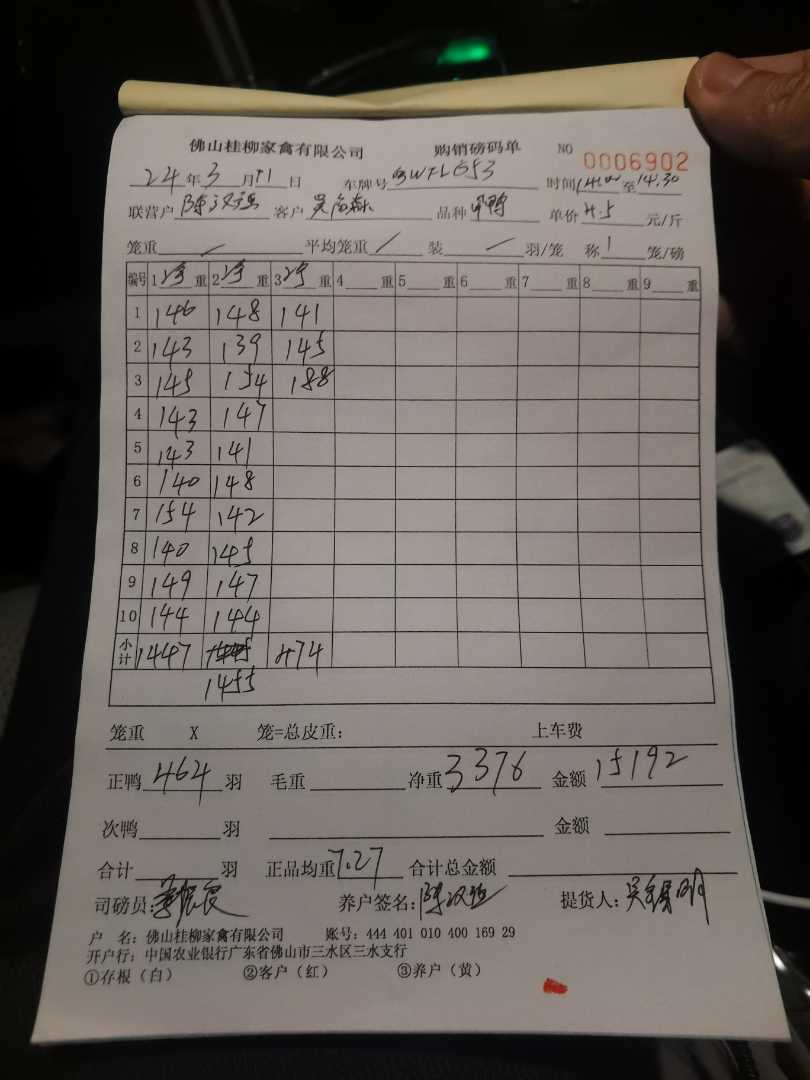 佛山桂柳家禽有限公司 购销磅码单 NO 0006902
24年3月11日 车牌号 时间14:00至14:30
联营户 客户 吴 品种 鸭 单价4.5元/斤
笼重/ 平均笼重/ 装/羽/笼 称1笼/磅
编号 1 20 重 2 20 重 3 29 重 4 重 5 重 6 重 7 重 8 重 9 重
1 146 148 141
2 143 139 145
3 145 154 188
4 143 147
5 143 141
6 140 148
7 154 142
8 140 145
9 149 147
10 144 144
小计 1447 474
1455
笼重 X 笼=总皮重: 上车费
正鸭464羽 毛重 净重3376 金额15192
次鸭 羽 金额
合计 羽 正品均重7.27 合计总金额
司磅员: 养户签名:陈汉 提货人:吴 明
户 名: 佛山桂柳家禽有限公司 账号: 444 401 010 400 169 29
开户行: 中国农业银行广东省佛山市三水区三水支行
①存根(白) ②客户(红) ③养户(黄)